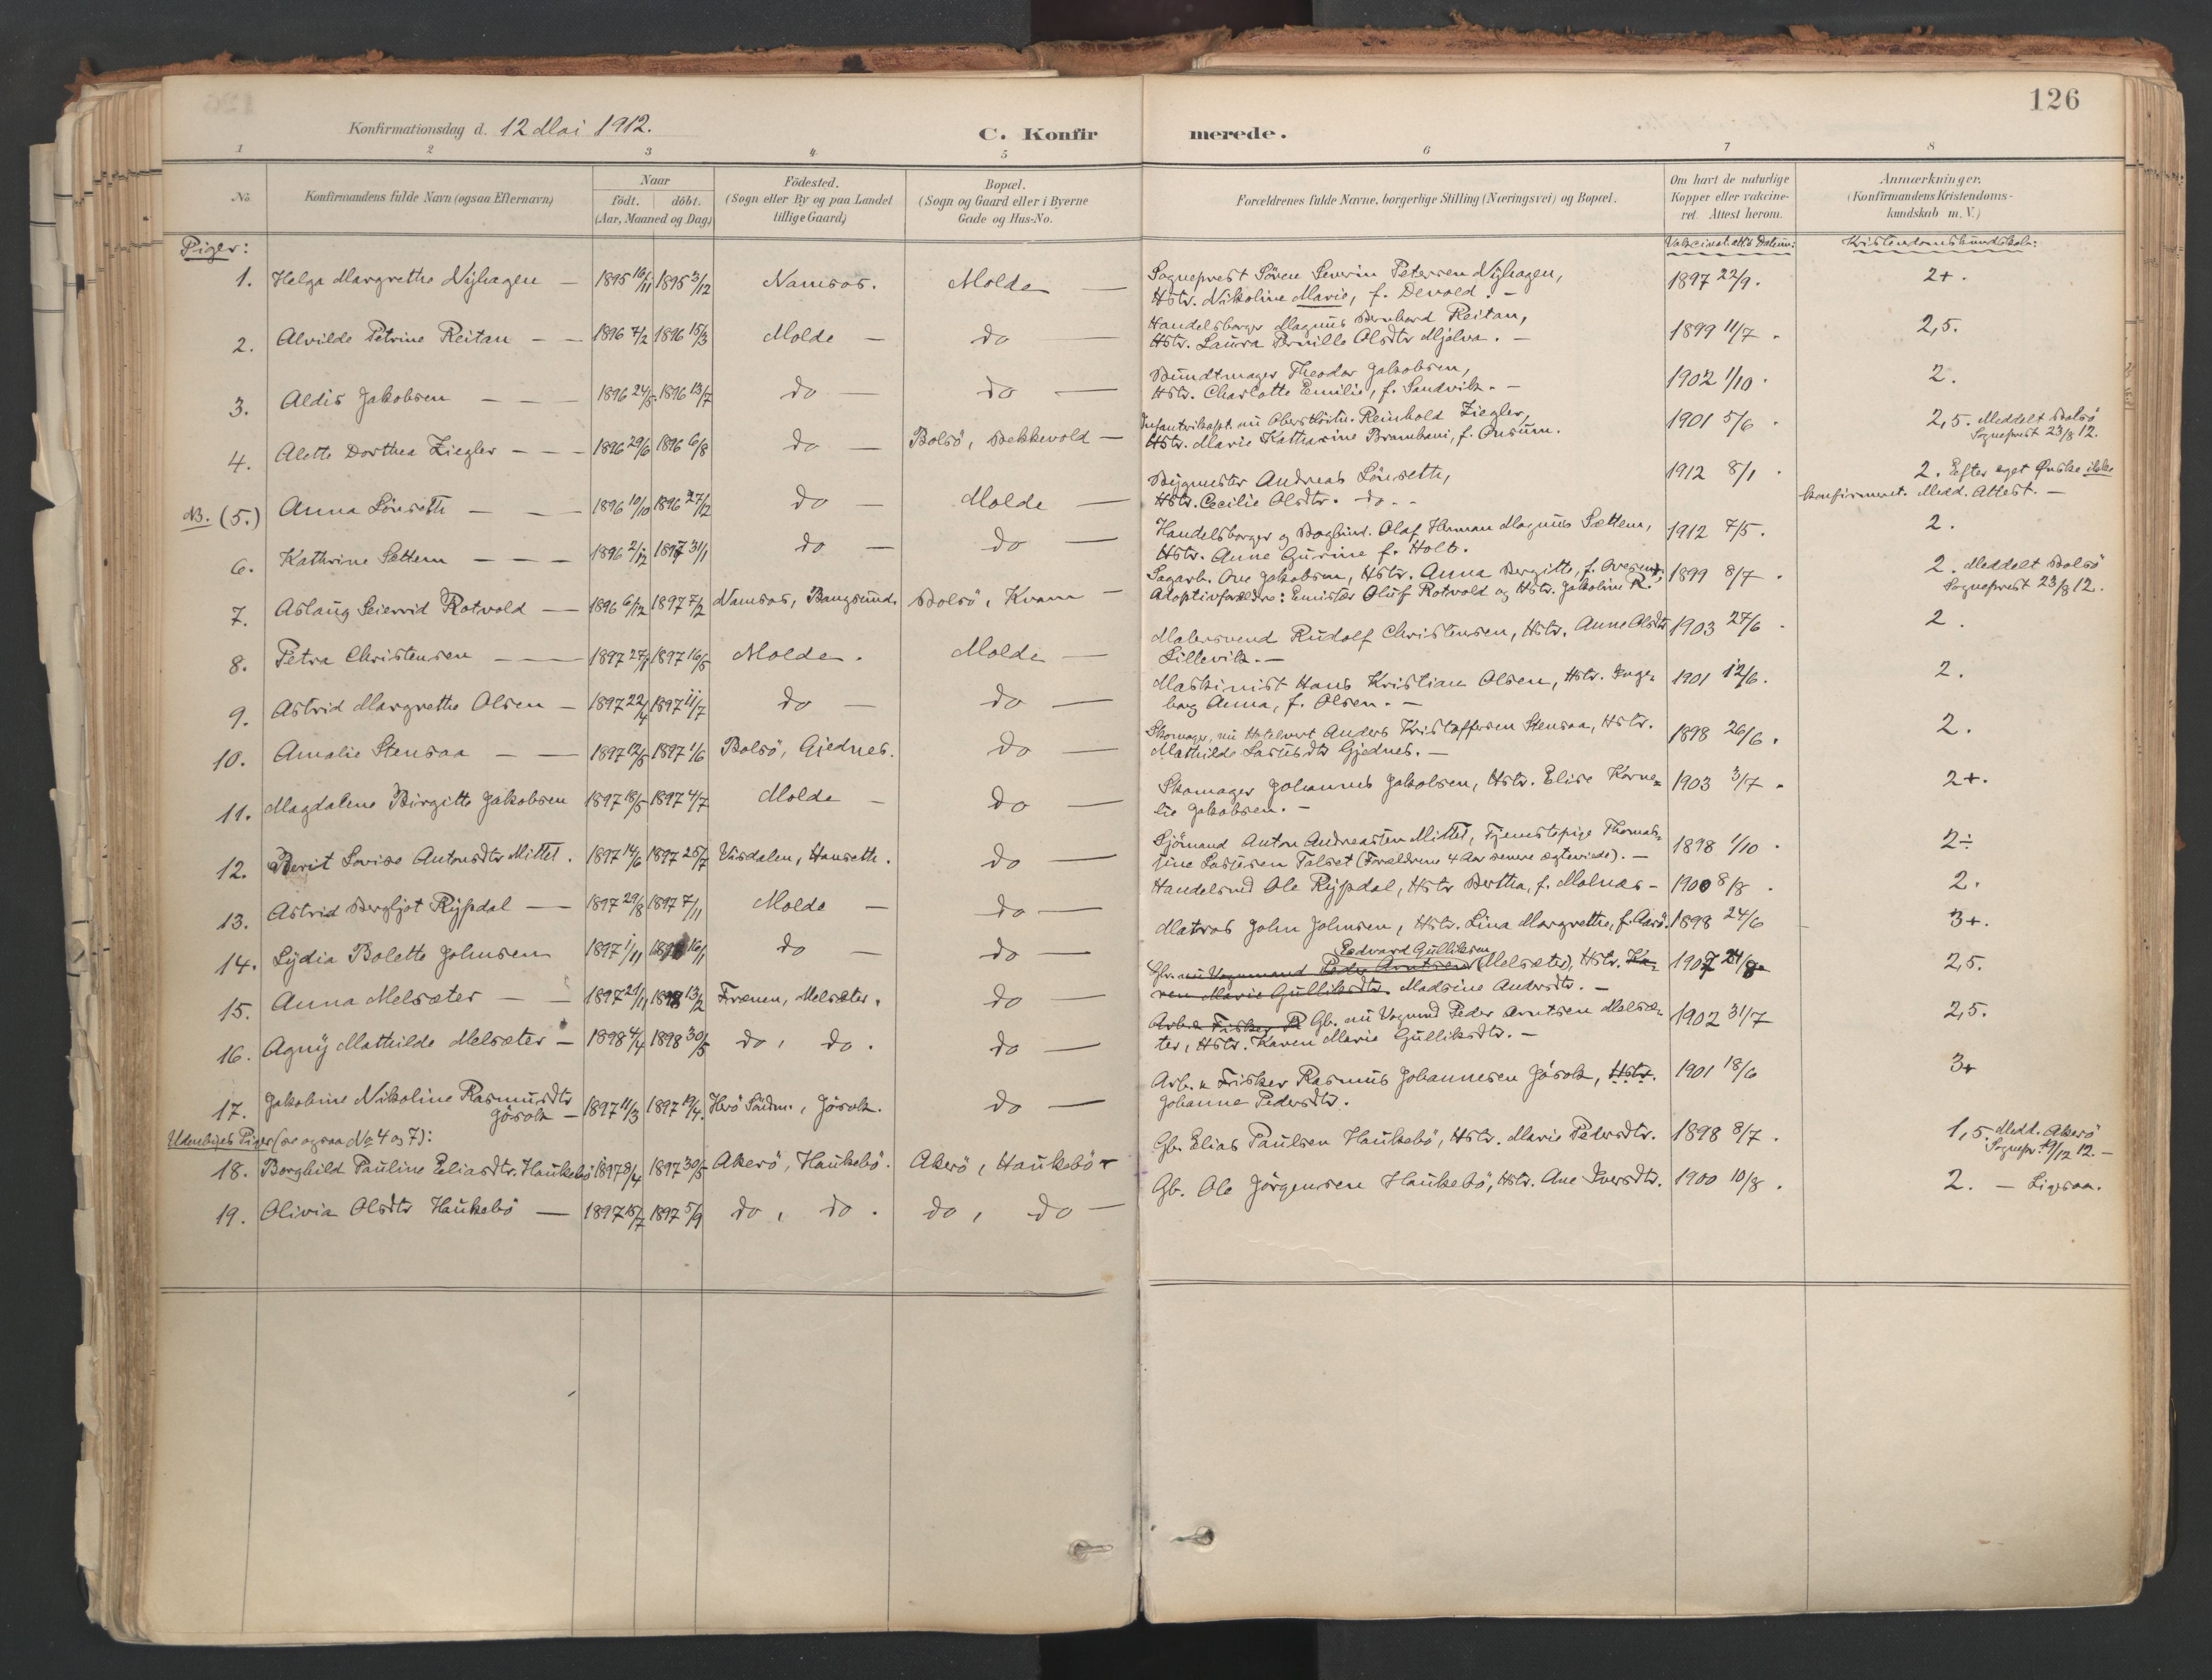 126
Konfirmationsdag d. 12 Mai 1912.
C. Konfirmerede.
1 2 3 4 5 6 7 8
No. Konfirmandens fulde Navn (ogsaa Efternavn) Naar födt. döbt. (Aar, Maaned og Dag) Födested. (Sogn eller By og paa Landet tillige Gaard) Bopæl. (Sogn og Gaard eller i Byerne Gade og Hus-No. Forældrenes fulde Navne, borgerlige Stilling (Næringsvei) og Bopæl. Om havt de naturlige Kopper eller vakcineret. Attest herom. Anmærkninger. (Konfirmandens Kristendomskundskab m. V.)
Piger: Vakcinat.att's Datum: Kristendomskundskab:
1. Helga Margrethe Nÿhagen — 1895 16/11 1895 3/12 Namsos. Molde — Sogneprest Sören Severin Petersen Nÿhagen, 1897 22/9. 2+.
Hstr. Nikoline Marie, f. Devold. —
2. Alvilde Petrine Reitan — — 1896 7/2 1896 15/3 Molde — do — Handelsborger Magnus Bernhard Reitan, 1899 11/7. 2,5.
Hstr. Laura Pernille Olsdtr Mjelva. —
3. Aldis Jakobsen — — — 1896 24/5 1896 13/7 do — do — Bundtmager Theodor Jakobsen, 1902 1/10. 2.
Hstr. Charlotte Emilie, f. Sandvik. —
4. Alette Dorthea Ziegler — — — 1896 29/6 1896 6/8 do — Bolsö, Bekkevold — Infanterikapt. nu Oberstlöitn. Reinhold Ziegler, 1901 5/6. 2,5. Meddelt Bolsö
Hstr. Marie Katharine Brambani, f. Onsum. Sogneprest 23/8 12.
NB. (5.) Anna Lönseth — — 1896 10/10 1896 27/12 do — Molde — Bygmester Andreas Lönseth, 1912 8/1. 2. Efter eget Ønske ikke
Hstr. Cecilie Olsdtr. do. — konfirmeret. Medd. Attest. —
6. Kathrine Sættem — — — 1896 2/12 1897 31/1 do — do — Handelsborger og Bogbind. Olaf Herman Magnus Sættem, 1912 7/5. 2.
Hstr. Anne Gurine f. Holt.
7. Aslaug Seiervid Rotvold — 1896 6/12 1897 7/2 Namsos, Bangsund. Bolsö, Kvam — Sagarb. Ove Jakobsen, Hstr. Anna Bergitte, f. 1899 8/7. 2. Meddelt Bolsö
Adoptivforældre: Emissær Oluf Rotvold og Hstr. Jakoline R. Sogneprest 23/8 12.
8. Petra Christensen — — 1897 27/1 1897 16/5 Molde. Molde — Malersvend Rudolf Christensen, Hstr. Anne Olsdtr 1903 27/6. 2.
Lillevik. —
9. Astrid Margrethe Olsen — 1897 22/4 1897 11/7 do — do — Maskinist Hans Kristian Olsen, Hstr. Inge- 1901 12/6. 2.
borg Anna, f. Olsen. —
10. Amalie Stensaa — — 1897 12/5 1897 1/6 Bolsö, Gjednes. do — Skomager, nu Hotelvert Anders Kristoffersen Stensaa, Hstr. 1898 26/6. 2.
Mathilde Lasusdtr Gjednes. —
11. Magdalene Birgitte Jakobsen 1897 18/5 1897 4/7 Molde — do — Skomager Johannes Jakobsen, Hstr. Elise Korne- 1903 3/7. 2+.
lie Jakobsen. —
12. Berit Lovise Antonsdtr Mittet. 1897 14/6 1897 25/7 Visdalen, Hanseth. do — Sjömand Anton Andreassen Mittet, Tjenestepige Thomas- 1898 1/10. 2÷
ine Lasusen Talset (Forældrene 4 Aar senere egteviede). —
13. Astrid Bergljot Rÿpdal — — 1897 29/8 1897 7/11 Molde — do — Handelsmd Ole Rÿpdal, Hstr Bertha, f. Molnes — 1900 8/8. 2.
14. Lÿdia Bolette Johnsen 1897 1/11 1897 16/1 do — do — Matros John Johnsen, Hstr. Lina Margrethe, f. Aarö. 1898 24/6 3+.
15. Anna Melsæter — — 1897 21/11 1898 13/2 Frænen, Melsæter. do — Gbr. nu Vognmand Peder Arntsen Eedvard Gulliksen (Melsæter), Hstr. Ka- 1907 24/8 2,5.
ren Marie Gulliksdtr. Madsine Andersdtr. —
16. Agnÿ Mathilde Melsæter — 1898 4/4 1898 30/5 do, do. do — Arb. & Fisker P Gb. nu Vognmd Peder Arntsen Melsæ- 1902 31/7 2,5.
ter, Hstr. Karen Marie Gulliksdtr. —
17. Jakobine Nikoline Rasmusdtr Jösok — 1897 11/3 1897 19/4. Herö Söndm., Jösok. do — Arb. & Fisker Rasmus Johannesen Jösok, Hstr. 1901 18/6 3+
Johanne Pedersdtr.
Udenbyes Piger (se ogsaa No 4 og 7):
18. Borghild Pauline Eliasdtr. Haukebö 1897 9/4 1897 30/5 Akerö, Haukebö. Akerö, Haukebö — Gb. Elias Paulsen Haukebö, Hstr. Marie Pedersdtr. 1898 8/7. 1,5. Medd. Akerö
Sognepr. 19/12 12. —
19. Olivia Olsdtr Haukebö — 1897 15/7 1897 5/9 do, do. do, do — Gb. Ole Jörgensen Haukebö, Hstr. Ane Iversdtr. 1900 10/8. 2. — Ligesaa.